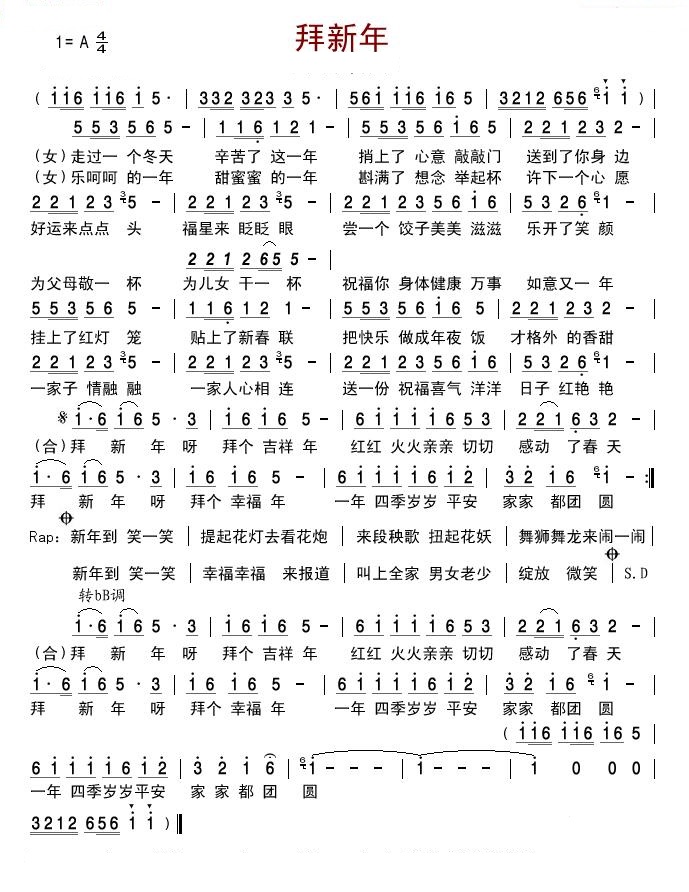 拜新年
1= A 4/4
( i i6 i i6 i 5· | 332 323 3 5· | 56i i i6 i6 5 | 3212 656 6i i ) |
5 5 3 5 6 5 - | 1 1 6 1 2 1 - | 5 5 3 5 6 5 i6 5 | 2 2 1 2 3 2 - |
(女) 走过一 个冬天 辛苦了 这一年 捎上了 心意 敲敲门 送到了你身 边
(女) 乐呵呵 的一年 甜蜜蜜 的一年 斟满了 想念 举起杯 许下一个心 愿
2 2 1 2 3 35 - | 2 2 1 2 3 35 - | 2 2 1 2 3 5 6 i6 | 5 3 2 6 6i - |
好运来点点 头 福星来 眨眨 眼 尝一个 饺子美美 滋滋 乐开了笑 颜
2 2 1 2 65 5 - |
为父母敬一 杯 为儿女 干一 杯 祝福你 身体健康 万事 如意又一 年
5 5 3 5 6 5 - | 1 1 6 1 2 1 - | 5 5 3 5 6 5 i6 5 | 2 2 1 2 3 2 - |
挂上了红灯 笼 贴上了新春 联 把快乐 做成年夜 饭 才格外 的香甜
2 2 1 2 3 35 - | 2 2 1 2 3 35 - | 2 2 1 2 3 5 6 i6 | 5 3 2 6 6i - |
一家子 情融 融 一家人心相 连 送一份 祝福喜气 洋洋 日子 红艳 艳
i·6 i6 5 · 3 | i6 i6 5 - | 6 i i i i 6 5 3 | 2 2 1 6 3 2 - |
(合) 拜 新 年 呀 拜个 吉祥 年 红红 火火亲亲 切切 感动 了春 天
i·6 i6 5 · 3 | i6 i6 5 - | 6 i i i i 6 i 2 | 3 2 i6 6i - :||
拜 新 年 呀 拜个 幸福 年 一年 四季岁岁 平安 家家 都团 圆
Rap: 新年到 笑一笑 | 提起花灯去看花炮 | 来段秧歌 扭起花妖 | 舞狮舞龙来闹一闹 |
新年到 笑一笑 | 幸福幸福 来报道 | 叫上全家 男女老少 | 绽放 微笑 | S.D
转bB调
i·6 i6 5 · 3 | i6 i6 5 - | 6 i i i i 6 5 3 | 2 2 1 6 3 2 - |
(合) 拜 新 年 呀 拜个 吉祥 年 红红 火火亲亲 切切 感动 了春天
i·6 i6 5 · 3 | i6 i6 5 - | 6 i i i i 6 i 2 | 3 2 i6 6i - |
拜 新 年 呀 拜个 幸福 年 一年 四季岁岁 平安 家家 都团 圆
( i i6 i i6 i6 5 |
6 i i i i 6 i 2 | 3 2 i 6 | 6i - - - | i - - - | 1 0 0 0 |
一年 四季岁岁平安 家 家 都 团 圆
3212 656 i i ) ||